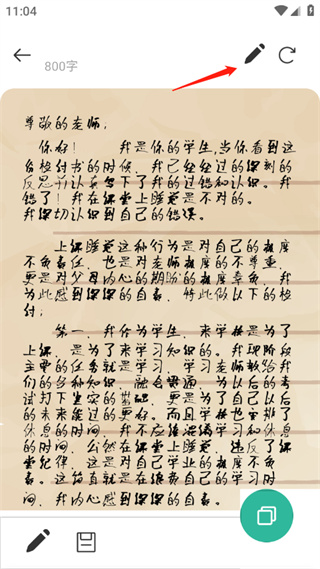 11:04
800字
尊敬的老师，
你好！ 我是你的学生，当你看到这
份检付书的时候，我已经经过的深刻的
反思前认真写下了我的过错和认识。我
错了！我在课堂上睡觉是不对的。
我深切认识到自己的错误。
上课睡觉这种行为是对自己的极度
不负责任，也是对老师极度的不尊重，
更是对父母内心的期盼的极度辜负，我
为此感到深深的自责，特此做以下的检
付：
第一，我作为学生，来学校是为了
上课，是为了来学习知识的。我现阶段
主要的任务就是学习，学习老师教给我
们的各种知识，融会贯通，为以后的考
试打下坚实的基础，更是为了自己以后
的未来能过的更好。而且学校也安排了
休息的时间，我不应该混淆学习和休息
的时间，公然在课堂上睡觉，违反了课
堂纪律，这是对自己学业的极度不负
责。这简直就是在浪费自己的学习时
间，我内心感到深深的自责。